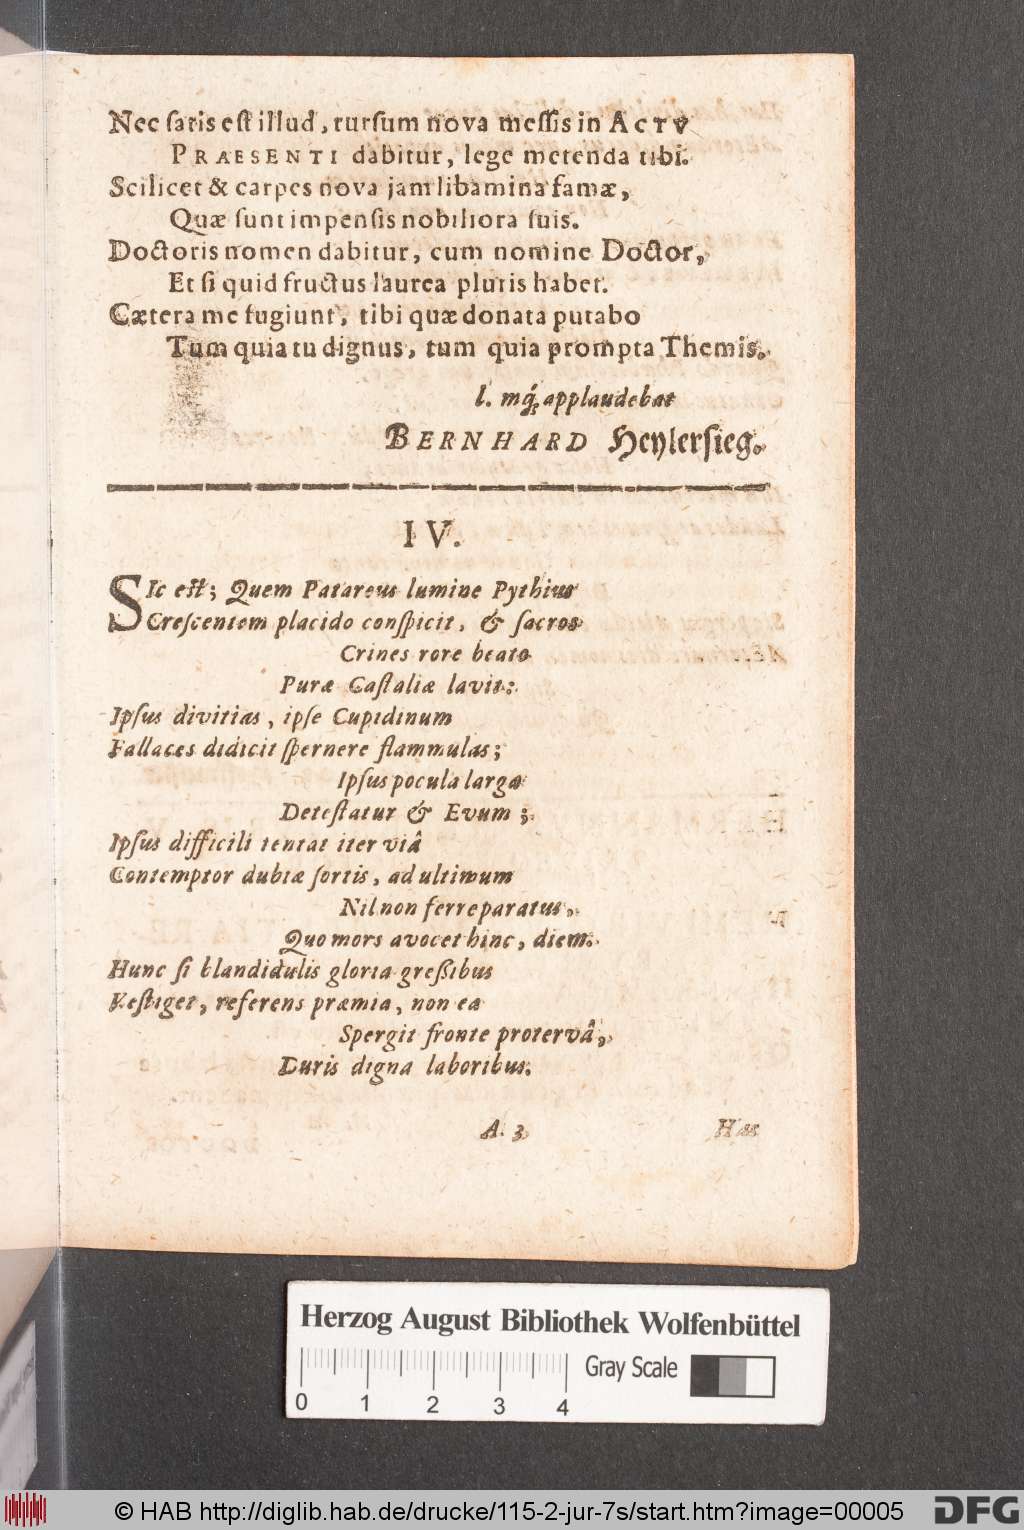 Nec ſatis eſt illud, rurſum nova meſſis in ACTV
PRAESENTI dabitur, lege metenda tibi.
Scilicet & carpes nova jam libamina famæ,
Quæ ſunt impenſis nobiliora ſuis.
Doctoris nomen dabitur, cum nomine Doctor,
Et ſi quid fructus laurea pluris habet.
Cætera me fugiunt, tibi quæ donata putabo
Tum quia tu dignus, tum quia prompta Themis.
l. mq́; applaudebat
BERNHARD Heylerſieg.
IV.
SIc eſt; Quem Patareus lumine Pythius
Creſcentem placido conſpicit, & ſacros
Crines rore beato
Puræ Caſtaliæ lavit:
Ipſus divitias, ipſe Cupidinum
Fallaces didicit ſpernere flammulas;
Ipſus pocula larga
Deteſtatur & Evum;
Ipſus difficili tentat iter viâ
Contemptor dubiæ ſortis, ad ultimum
Nil non ferre paratus,
Quo mors avocet hinc, diem.
Hunc ſi blandidulis gloria greßibus
Veſtiget, referens præmia, non ea
Spergit fronte protervâ,
Duris digna laboribus.
A 3
Hæc
Herzog August Bibliothek Wolfenbüttel
Gray Scale
0 1 2 3 4
© HAB http://diglib.hab.de/drucke/115-2-jur-7s/start.htm?image=00005
DFG